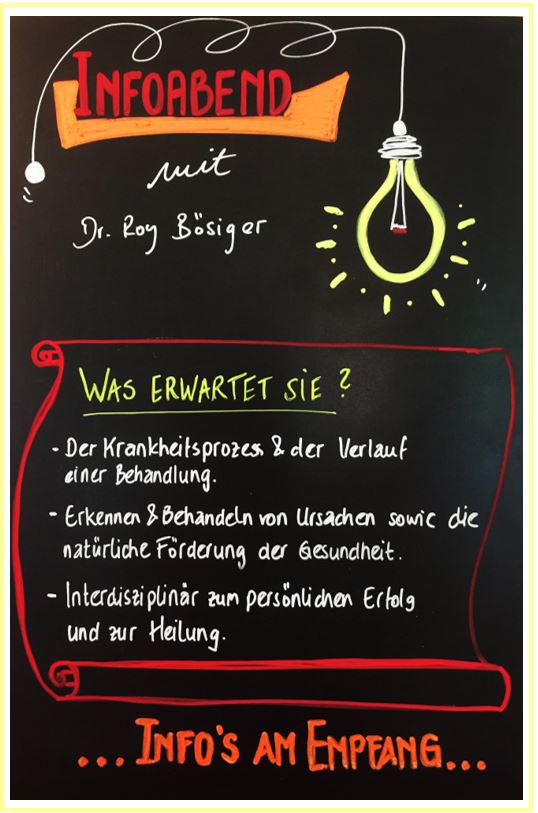 INFOABEND
mit
Dr. Roy Bösiger
WAS ERWARTET SIE ?
- Der Krankheitsprozess & der Verlauf
einer Behandlung.
- Erkennen & Behandeln von Ursachen sowie die
natürliche Förderung der Gesundheit.
- Interdisziplinär zum persönlichen Erfolg
und zur Heilung.
... INFO'S AM EMPFANG...